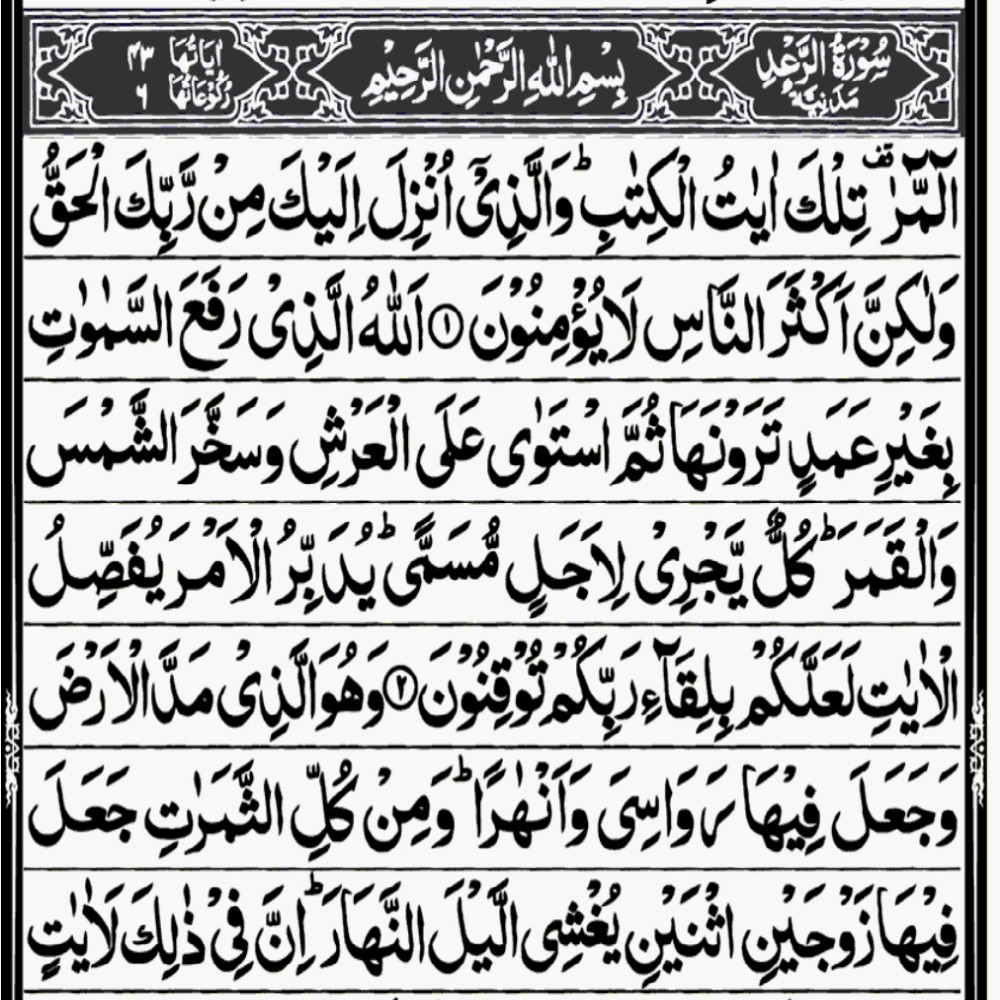 سُوْرَةُ الرَّعْدِ مَدَنِيَّةٌ بِسْمِ اللّٰهِ الرَّحْمٰنِ الرَّحِيْمِ اٰيَاتُهَا ۴۳ رُكُوْعَاتُهَا ۶
الٓمّٓرٰ ۟ تِلْكَ اٰيٰتُ الْكِتٰبِ ؕ وَالَّذِىْۤ اُنْزِلَ اِلَيْكَ مِنْ رَّبِّكَ الْحَقُّ
وَلٰكِنَّ اَكْثَرَ النَّاسِ لَا يُؤْمِنُوْنَ ۝۱ اَللّٰهُ الَّذِىْ رَفَعَ السَّمٰوٰتِ
بِغَيْرِ عَمَدٍ تَرَوْنَهَا ثُمَّ اسْتَوٰى عَلَى الْعَرْشِ وَسَخَّرَ الشَّمْسَ
وَالْقَمَرَ ؕ كُلٌّ يَّجْرِىْ لِاَجَلٍ مُّسَمًّى ؕ يُدَبِّرُ الْاَمْرَ يُفَصِّلُ
الْاٰيٰتِ لَعَلَّكُمْ بِلِقَآءِ رَبِّكُمْ تُوْقِنُوْنَ ۝۲ وَهُوَ الَّذِىْ مَدَّ الْاَرْضَ
وَجَعَلَ فِيْهَا رَوَاسِىَ وَاَنْهٰرًا ؕ وَمِنْ كُلِّ الثَّمَرٰتِ جَعَلَ
فِيْهَا زَوْجَيْنِ اثْنَيْنِ يُغْشِى الَّيْلَ النَّهَارَ ؕ اِنَّ فِىْ ذٰلِكَ لَاٰيٰتٍ